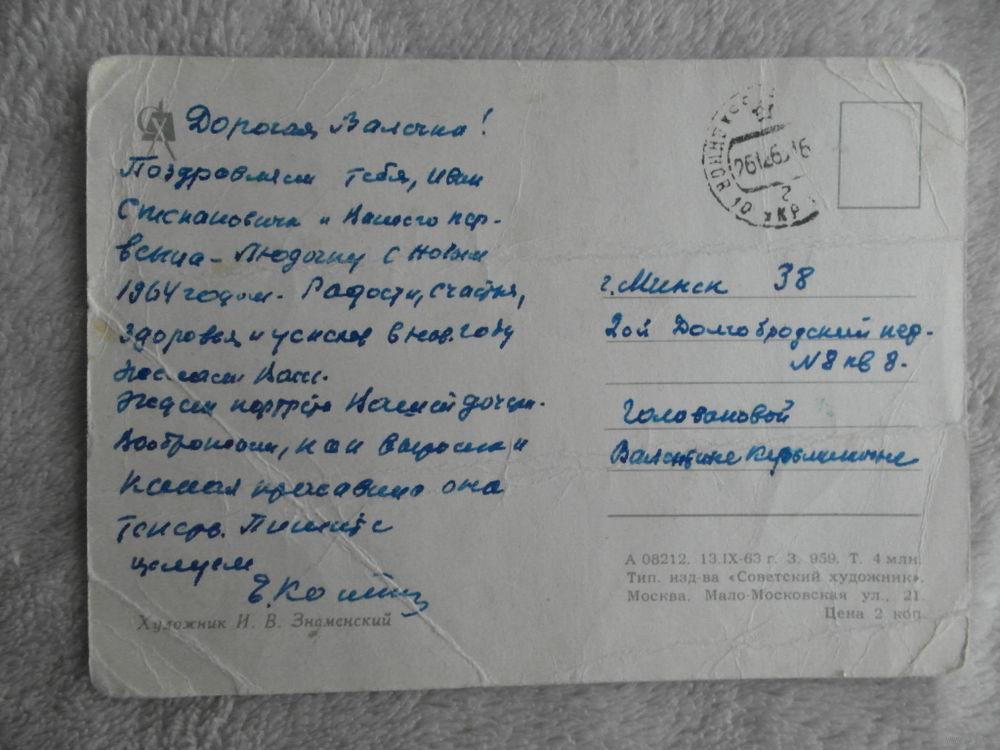 Дорогая Валечка!
Поздравляем тебя, Иван
Степановича и Вашего пер-
венца - Людочку с новым
1964 годом. Радости, счастья,
здоровья и успехов в нов. году
желаем Вам.
Ждем портрета Вашей дочери.
Воображаем, как выросла и
какая красавица она
теперь. Пишите
целуем
г. Минск 38
2ой Долгобродский пер.
N8 кв 8.
Головановой
Валентине
А 08212. 13.IX-63 г. З. 959. Т. 4 млн.
Тип. изд-ва «Советский художник».
Москва, Мало-Московская ул., 21.
Цена 2 коп.
Художник И. В. Знаменский